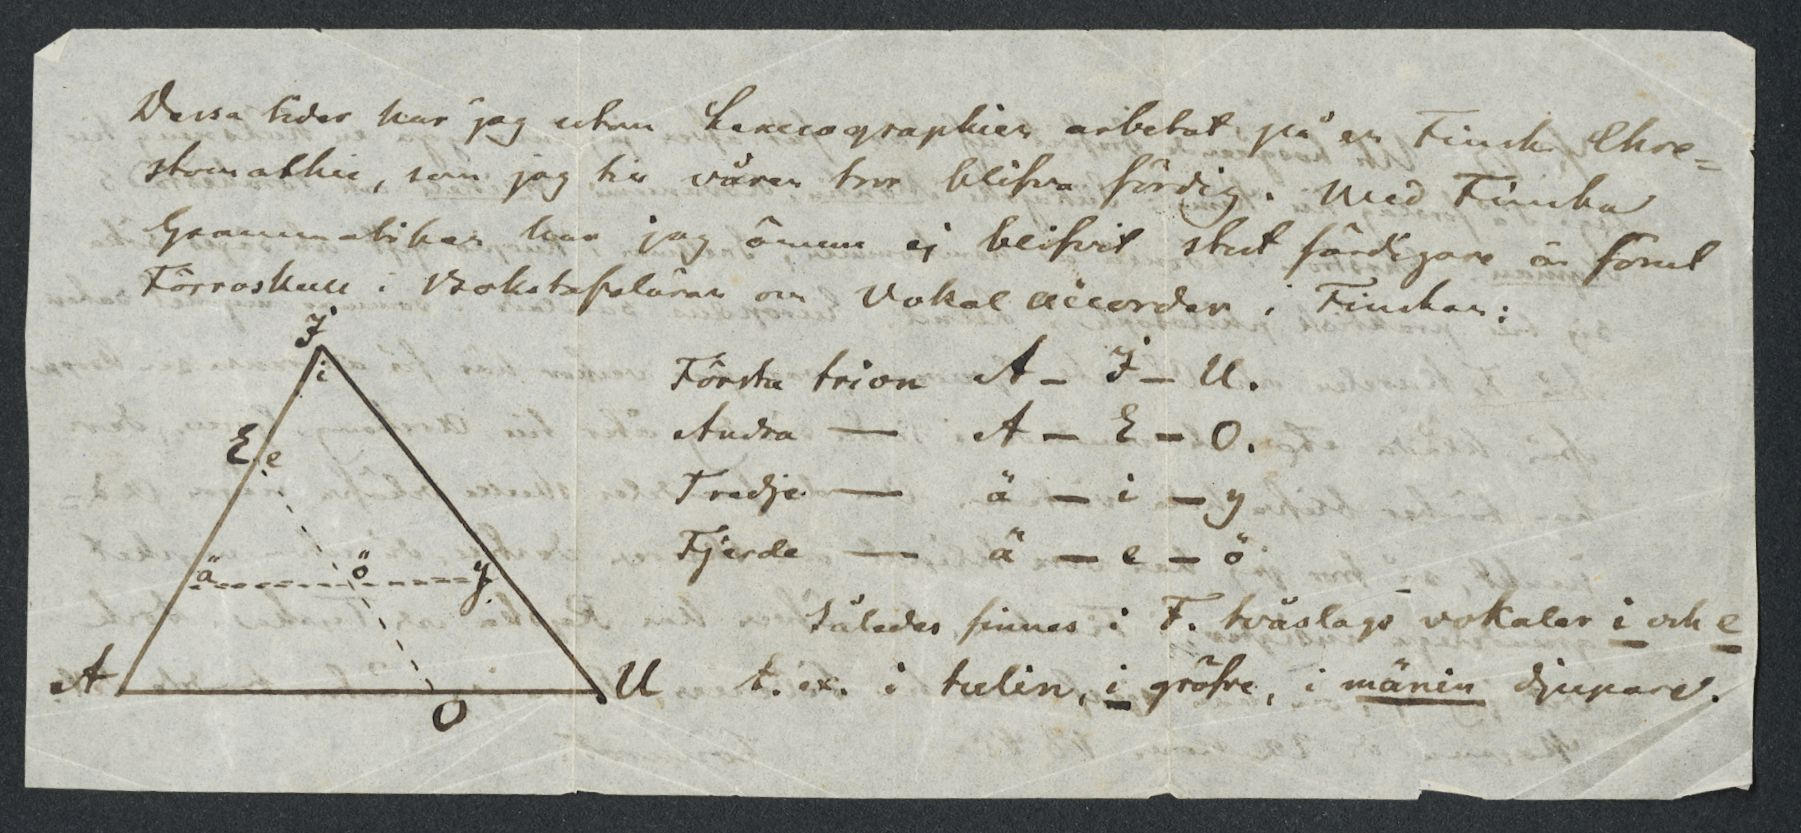 Dessa tider har jag utom Lexicographien arbetat på en Finsk Chre=
stomathie, som jag till våren tror blifva färdig. Med Finska
Grammatiken har jag ännu ej blifvit stort färdigare än förut
Förroskull i Bokstafsläran om Vokal accorden i Finskan:
I
i
E e
ä ö y
A U
O
Första trion A – I – U.
Andra — A – E – O.
Tredje — ä – i – y
Fjerde — ä – e – ö
Således finnas i F. tvåslags vokaler i och e
t. ex. i tulin, i gröfre, i mänin djupare.